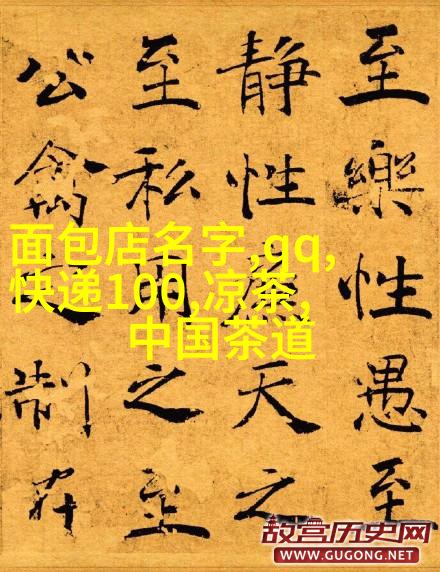 至樂性愚至
静性天之
至私用之至
公禽制在
面包店名字,qq,
快递100,凉茶,
中国茶道
故宫历史网
www.GUGONG.net